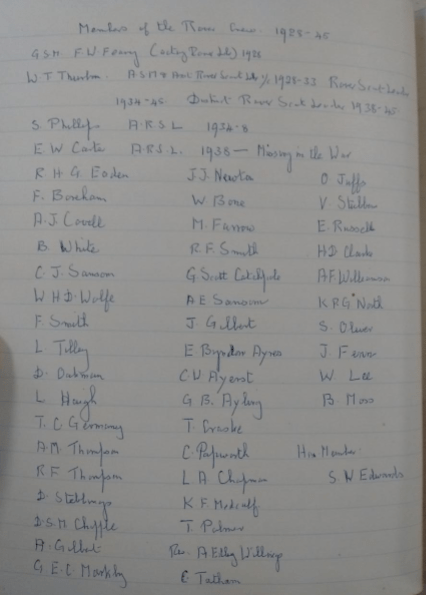 Members of the Rover Crew. 1928-45
G S M. F.W. Fenny (Acting Rover Ldr) 1928
W T Thurston. A S M & Asst Rover Scout Ldr i/c 1928-33 Rover Scout Leader
1934-45. District Rover Scout Leader 1938-45
S. Phillips A.R.S.L. 1934-8
E W Carter A.R.S.L. 1938 — Missing in the War
R H G Eaden J.J. Newton O Jaffs
F. Boreham W. Bone V.
A.J. Covell M. Farrow E. Russell
B. White R F. Smith H D Clarke
C. J. Sansom G. Scott Catchpole A F Williamson
W H D. Wolfe A E Sansom K R G North
F. Smith J Gilbert S. Oliver
L Tilley E. Ayres J.
D. C V Ayerst W Lee
L Haugh G B. Ayling B Moss
T. C Germany T. Craske
A M. Thompson C. Papworth Hon Member
R F. Thompson L A. Chapman S W Edwards
D Stebbings K F Medcalf
D.S.M. T. Palmer
A. Gilbert Rev. A
G. E. C. Markby E Tatham